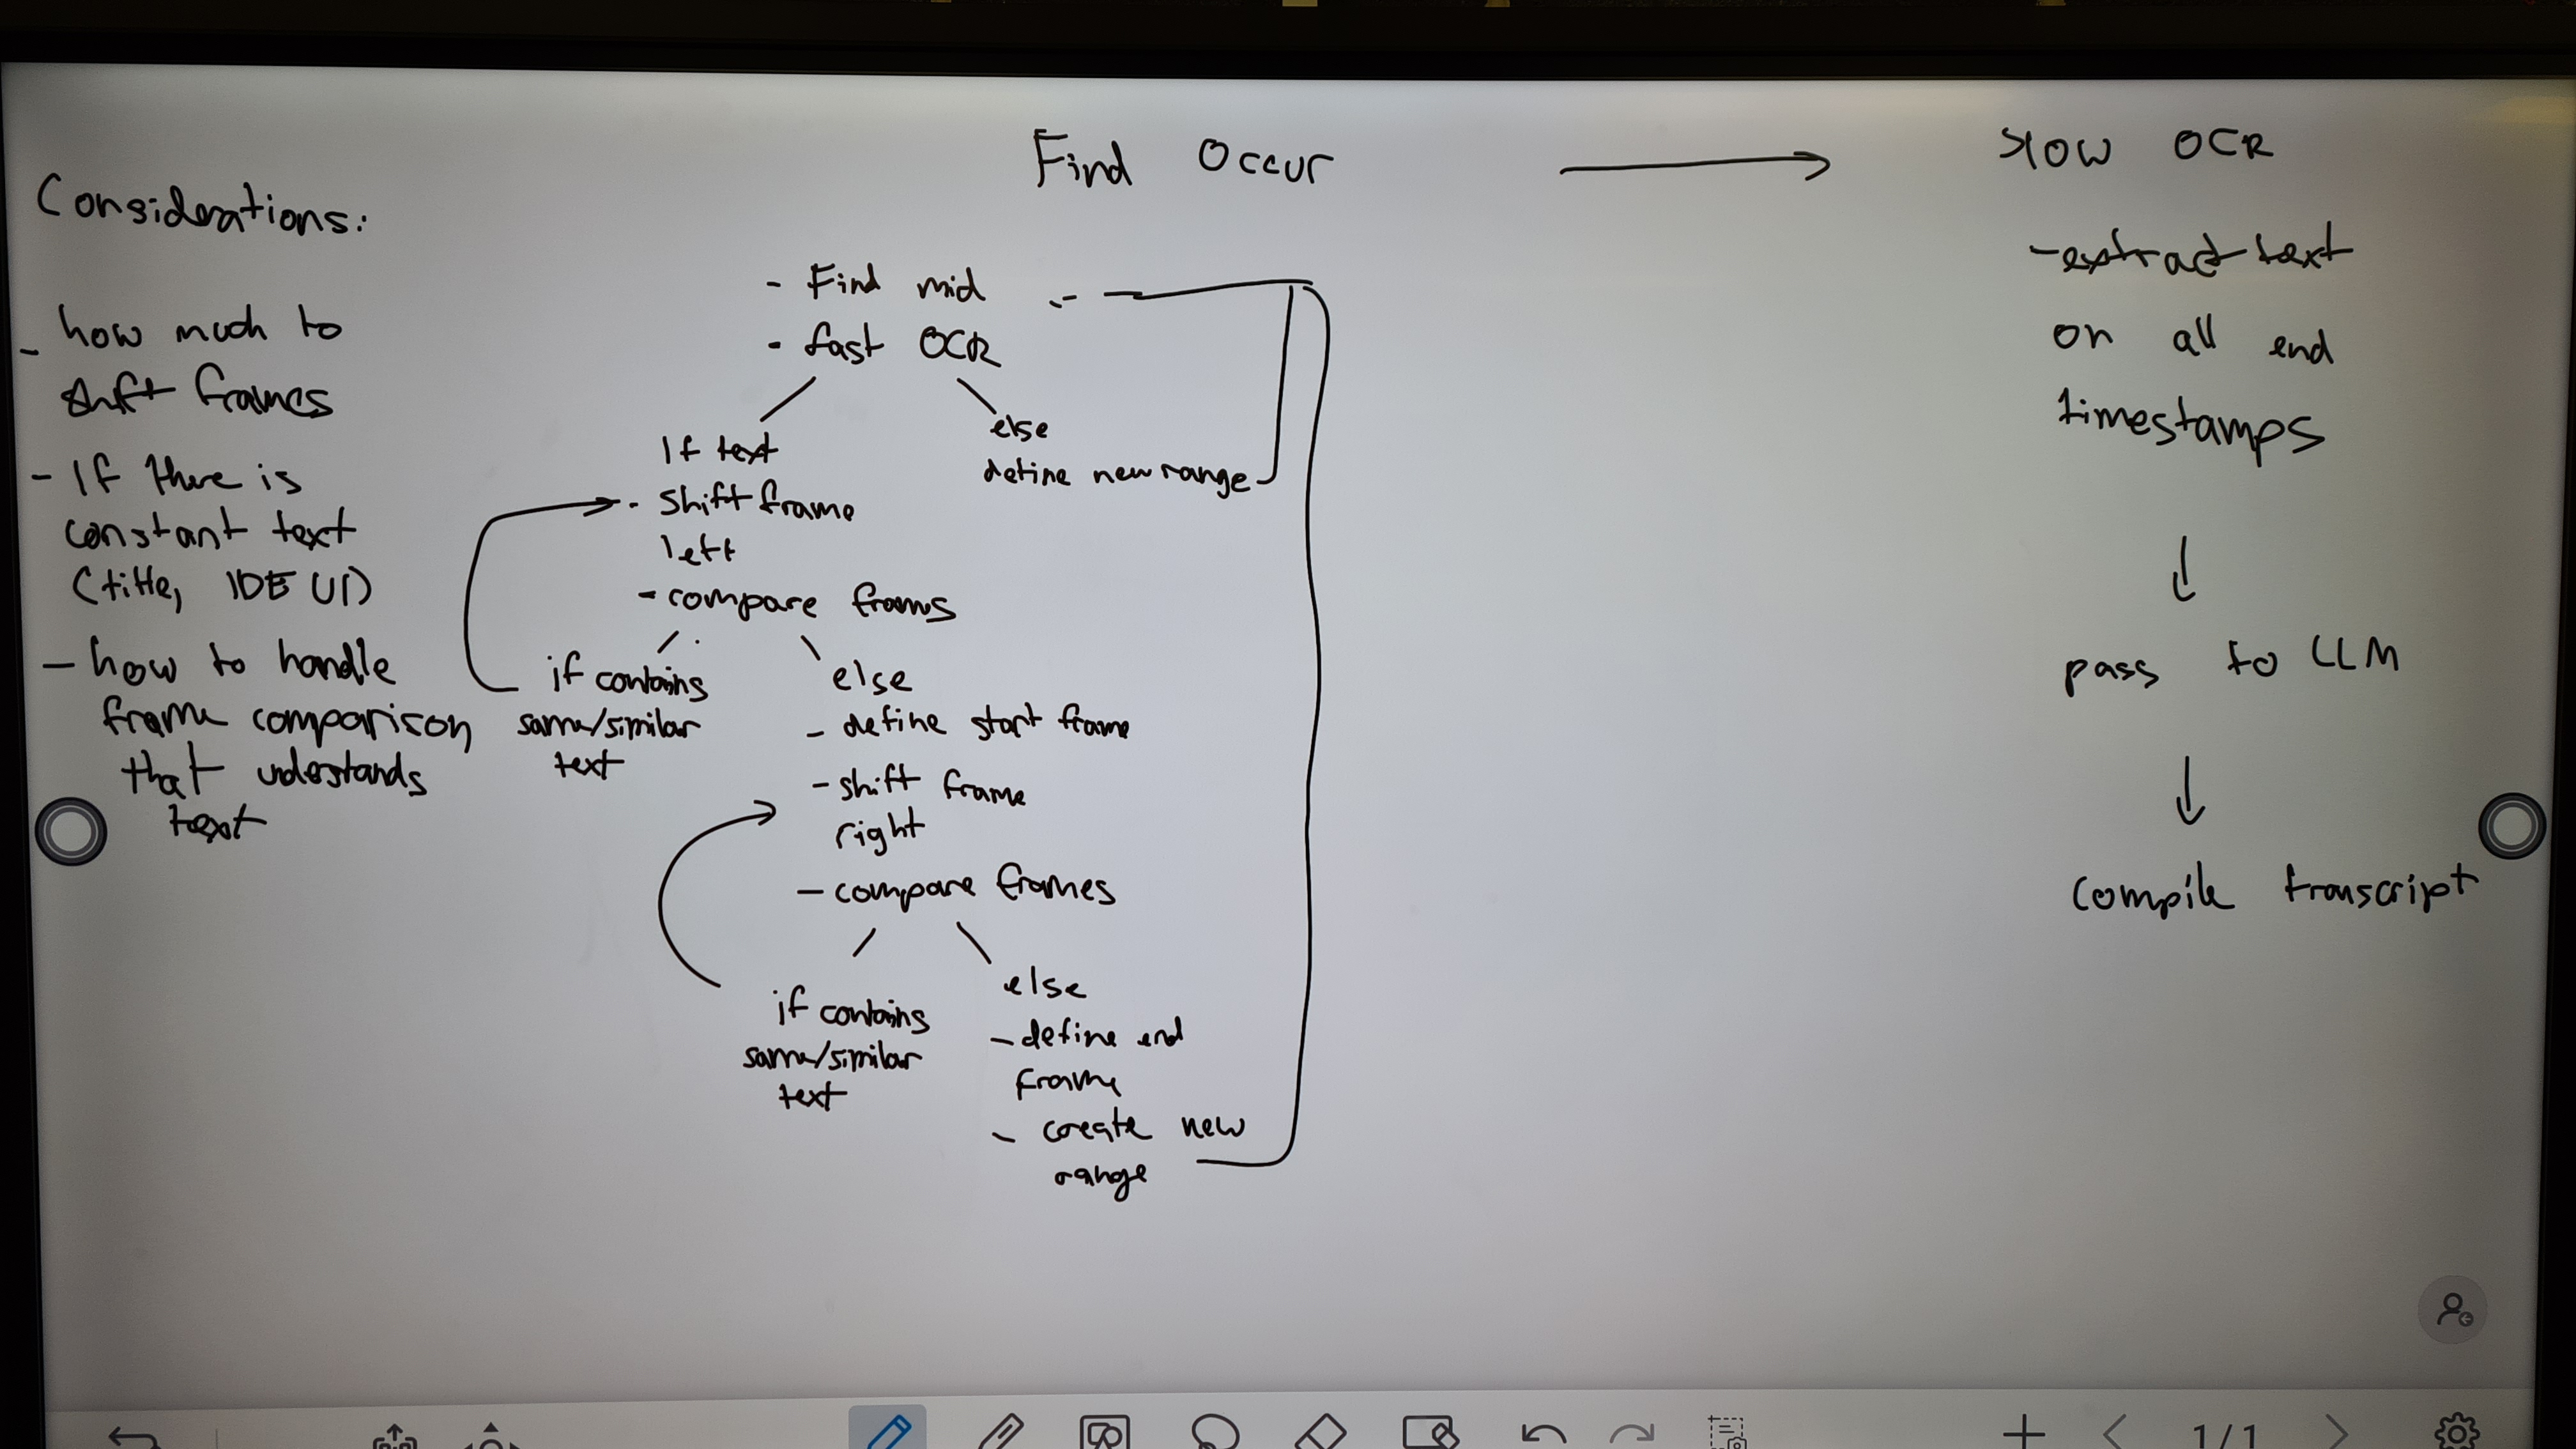 Considerations:
- how much to
shift frames
- If there is
constant text
(title, IDE UI)
- how to handle
frame comparison
that understands
text
Find Occur
- Find mid
- fast OCR
If text
- shift frame
left
- compare frames
else
define new range
if contains
same/similar
text
else
- define start frame
- shift frame
right
- compare frames
if contains
same/similar
text
else
- define end
frame
- create new
range
Slow OCR
- extract text
on all end
timestamps
pass to LLM
compile transcript
1/1